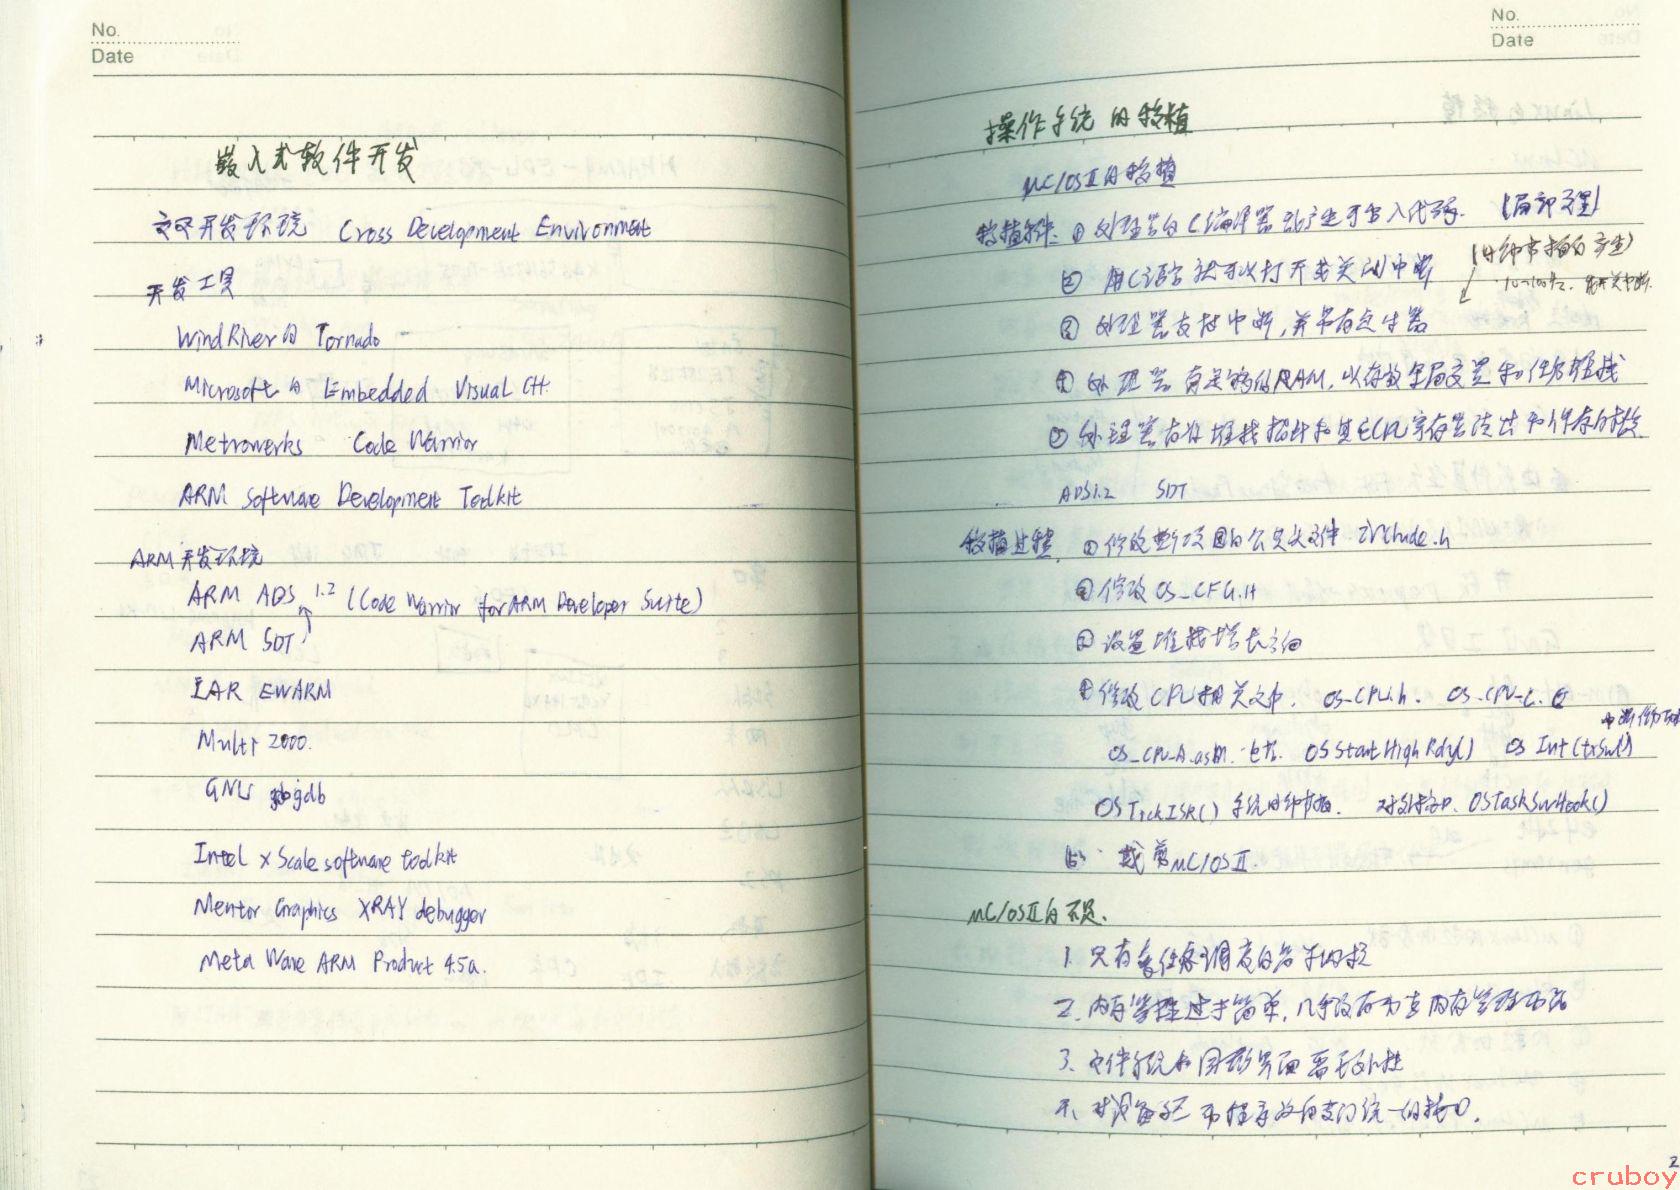 No.
Date
嵌入式软件开发
交叉开发环境 Cross Development Environment
开发工具
WindRiver的 Tornado
Microsoft的 Embedded Visual C++
Metrowerks Code Warrior
ARM Software Development Toolkit
ARM开发环境
ARM ADS 1.2 (Code Warrior for ARM Developer Suite)
ARM SDT
IAR EWARM
Multi 2000.
GNU gdb
Intel xScale software toolkit
Mentor Graphics XRAY debugger
Meta Ware ARM Product 4.5a.
No.
Date
操作系统的移植
μC/OS II的移植
移植条件: ① 处理器的C编译器能产生可重入代码. (局部变量)
② 用C语言就可以打开或关闭中断 (时钟节拍的产生)
10~100Hz. 能开关中断.
③ 处理器支持中断,并带有定时器
④ 处理器有足够的RAM,以存放全局变量和任务堆栈
⑤ 处理器有将堆栈指针和其它CPU寄存器读出和
ADS1.2 SDT
移植过程. ① 修改新项目的公共头文件 include.h
② 修改 OS_CFG.H
③ 设置堆栈增长方向
④ 修改CPU相关文件. OS_CPU.h. OS_CPU_C.C
OS_CPU_A.asm. 包括. OSStartHighRdy() OS IntCtxSw()
OSTickISR() 系统时钟节拍. OSTaskSwHook()
⑤. 裁剪μC/OS II.
μC/OS II的不足.
1. 只有多任务调度的
2. 内存管理过于简单,几乎没有动态内存管理功能
3. 文件系统和图形界面需要外挂
4. 对设备 统一的接口.
2
cruboy